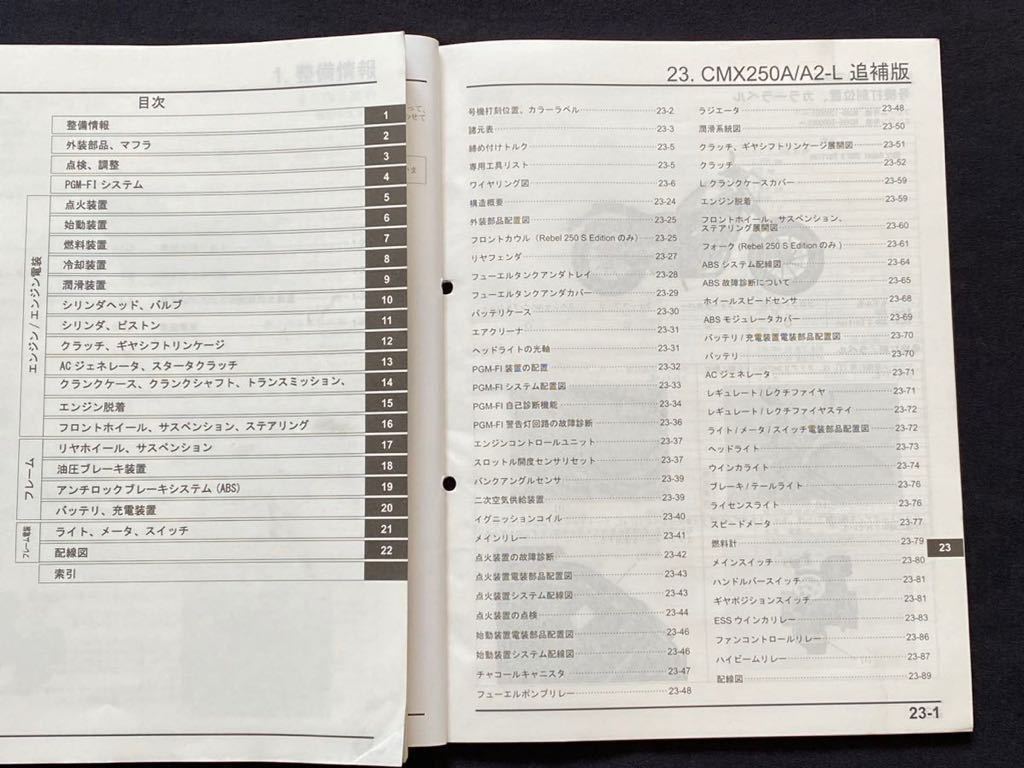 目次
整備情報 1
外装部品、マフラ 2
点検、調整 3
PGM-FI システム 4
エンジン / エンジン電装
点火装置 5
始動装置 6
燃料装置 7
冷却装置 8
潤滑装置 9
シリンダヘッド、バルブ 10
シリンダ、ピストン 11
クラッチ、ギヤシフトリンケージ 12
ACジェネレータ、スタータクラッチ 13
クランクケース、クランクシャフト、トランスミッション、 14
エンジン脱着 15
フレーム
フロントホイール、サスペンション、ステアリング 16
リヤホイール、サスペンション 17
油圧ブレーキ装置 18
アンチロックブレーキシステム (ABS) 19
バッテリ、充電装置 20
フレーム電装
ライト、メータ、スイッチ 21
配線図 22
索引
23. CMX250A/A2-L 追補版
号機打刻位置、カラーラベル 23-2
諸元表 23-3
締め付けトルク 23-5
専用工具リスト 23-5
ワイヤリング図 23-6
構造概要 23-24
外装部品配置図 23-25
フロントカウル (Rebel 250 S Edition のみ) 23-25
リヤフェンダ 23-27
フューエルタンクアンダトレイ 23-28
フューエルタンクアンダカバー 23-29
バッテリケース 23-30
エアクリーナ 23-31
ヘッドライトの光軸 23-31
PGM-FI 装置の配置 23-32
PGM-FI システム配置図 23-33
PGM-FI 自己診断機能 23-34
PGM-FI 警告灯回路の故障診断 23-36
エンジンコントロールユニット 23-37
スロットル開度センサリセット 23-37
バンクアングルセンサ 23-39
二次空気供給装置 23-39
イグニッションコイル 23-40
メインリレー 23-41
点火装置の故障診断 23-42
点火装置電装部品配置図 23-43
点火装置システム配線図 23-43
点火装置の点検 23-44
始動装置電装部品配置図 23-46
始動装置システム配線図 23-46
チャコールキャニスタ 23-47
フューエルポンプリレー 23-48
ラジエータ 23-48
潤滑系統図 23-50
クラッチ、ギヤシフトリンケージ展開図 23-51
クラッチ 23-52
L クランクケースカバー 23-59
エンジン脱着 23-59
フロントホイール、サスペンション、
ステアリング展開図 23-60
フォーク (Rebel 250 S Edition のみ) 23-61
ABS システム配線図 23-64
ABS 故障診断について 23-65
ホイールスピードセンサ 23-68
ABS モジュレータカバー 23-69
バッテリ / 充電装置電装部品配置図 23-70
バッテリ 23-70
AC ジェネレータ 23-71
レギュレート / レクチファイヤ 23-71
レギュレート / レクチファイヤステイ 23-72
ライト / メータ / スイッチ電装部品配置図 23-72
ヘッドライト 23-73
ウインカライト 23-74
ブレーキ / テールライト 23-76
ライセンスライト 23-76
スピードメータ 23-77
燃料計 23-79
メインスイッチ 23-80
ハンドルバースイッチ 23-81
ギヤポジションスイッチ 23-81
ESS ウインカリレー 23-83
ファンコントロールリレー 23-86
ハイビームリレー 23-87
配線図 23-89
23
23-1